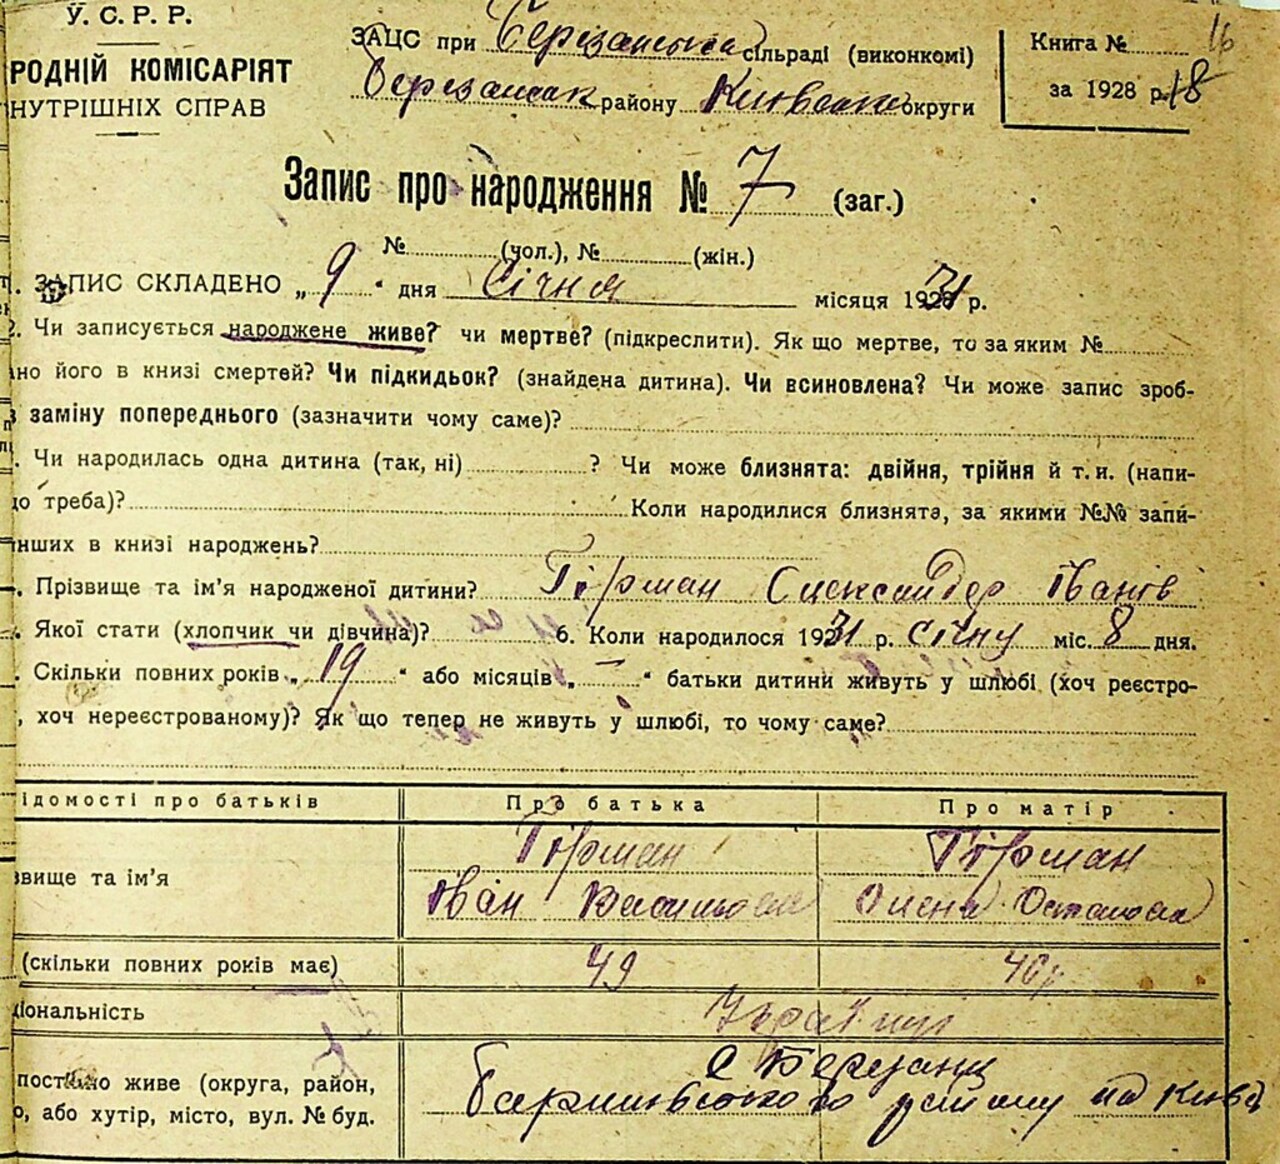 У. С. Р. Р.
РОДНІЙ КОМІСАРІЯТ
НУТРІШНІХ СПРАВ
ЗАЦС при Березанська сільраді (виконкомі)
Березанськ району Київської округи
Книга № 16
за 1928 р. 18
Запис про народження № 7 (заг.)
№ (чол.), № (жін.)
ЗАПИС СКЛАДЕНО „ 9 “ дня Січня місяця 1931 р.
2. Чи записується народжене живе? чи мертве? (підкреслити). Як що мертве, то за яким №
но його в книзі смертей? Чи підкидьок? (знайдена дитина). Чи всиновлена? Чи може запис зроб-
в заміну попереднього (зазначити чому саме)?
. Чи народилась одна дитина (так, ні) ? Чи може близнята: двійня, трійня й т. и. (напи-
до треба)? Коли народилися близнята, за якими №№ запи-
нших в книзі народжень?
. Прізвище та ім’я народженої дитини? Гірман Олександер Іванів
. Якої стати (хлопчик чи дівчина)? 6. Коли народилося 1931 р. січну міс. 8 дня.
. Скільки повних років „ 19 “ або місяців „ — “ батьки дитини живуть у шлюбі (хоч реєстро-
, хоч нереєстрованому)? Як що тепер не живуть у шлюбі, то чому саме?
ідомості про батьків Про батька Про матір
звище та ім’я Гірман Гірман
Іван Олена
(скільки повних років має) 49 40р
ціональність Українці
постійно живе (округа, район, с Березань
о, або хутір, місто, вул. № буд. Баришівського району